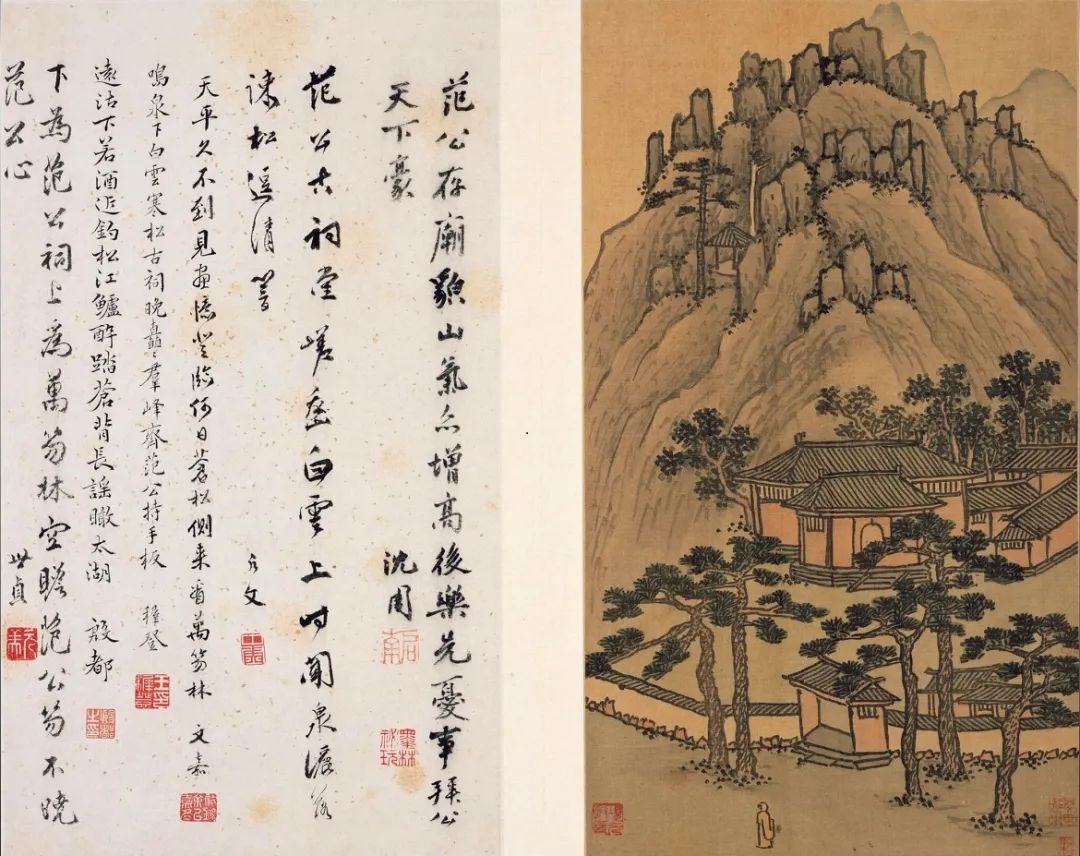 范公存廟貌山氣亦增高後樂先憂事拜公
天下豪 沈周
啟南
墨林祕玩
范公古祠堂嵯峨白雲上時聞泉瀑落
疎松逗清響 允文
天平久不到見畫憶登臨何日蒼松側来看萬笏林 文嘉
鳴泉下白雲寒松古祠晚矗矗羣峰齊范公持手板 穉登
遠沽下若酒近釣松江鱸醉踏蒼背長謠瞰太湖 殷都
下為范公祠上為萬笏林空瞻范公笏不曉
范公心 世貞